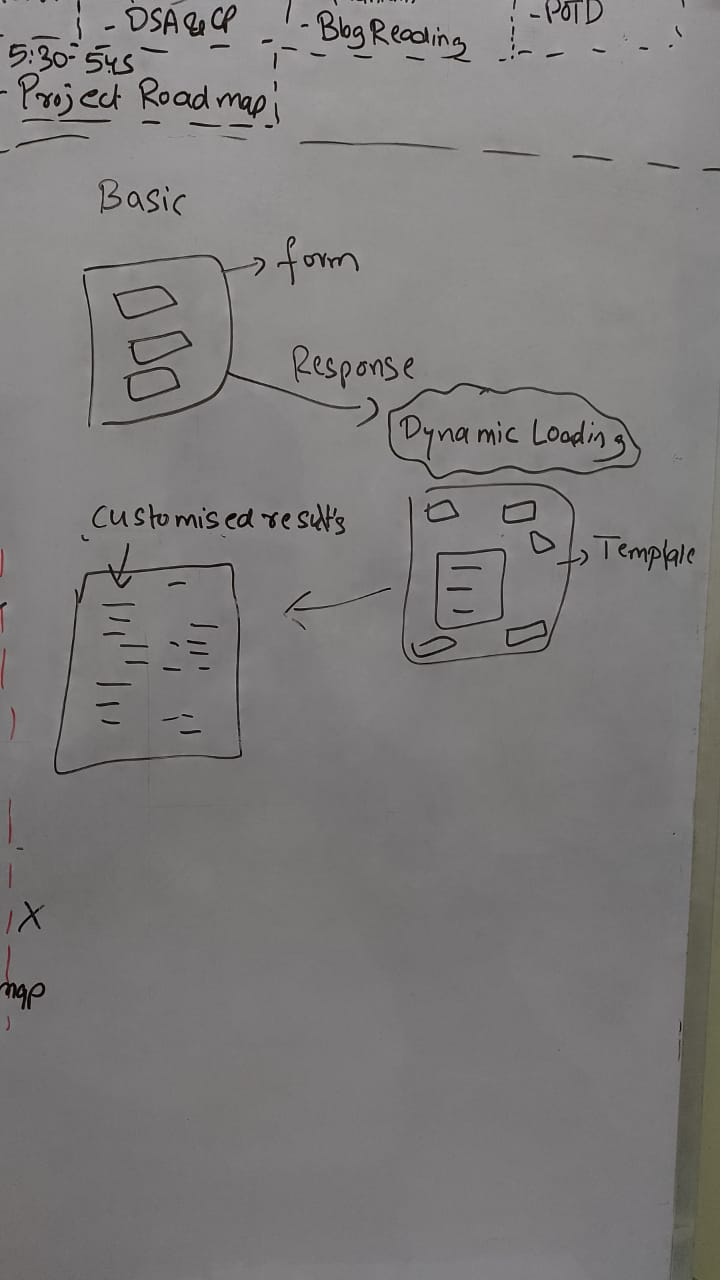 - DSA & CP
- Blog Reading
- POTD
5:30-
- Project Roadmap
Basic
form
Response
Dynamic Loading
Customised results
Template
X
map